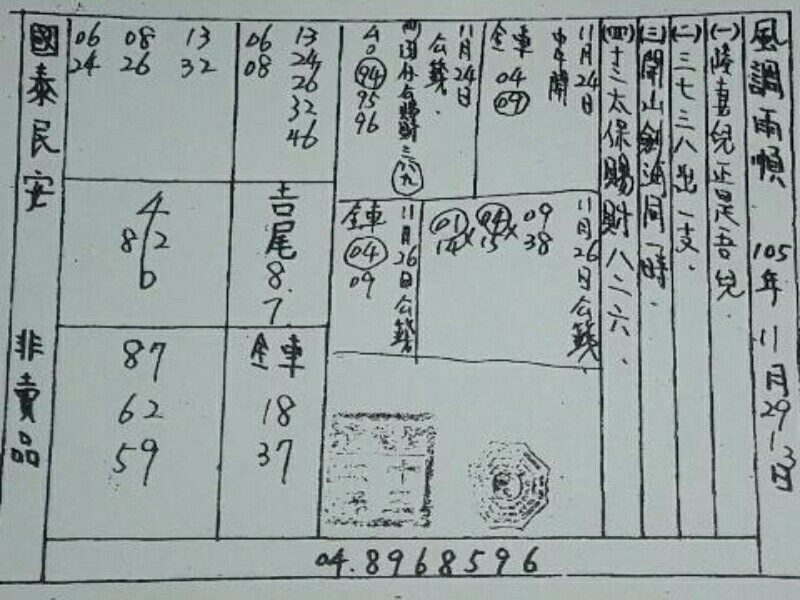 風調雨順 105年11月29-3日
(一)隆喜兒正是吾兒
(二)三七三八出一支.
(三)開山劍海同一時.
(四)十二太保賜財八二六.
11月24日
中午開
金車
04
09
11月24日
公籤.
四
40
94
95
96
11月26日公籤
01 04 09
14 × 15 × 38
11月26日公籤
金車
04
09
06 13
08 24
26
32
46
吉尾
8.
7.
金車
18
37
06 08 13
24 26 32
4
8 2
0
87
62
59
國泰民安 非賣品
04.8968596